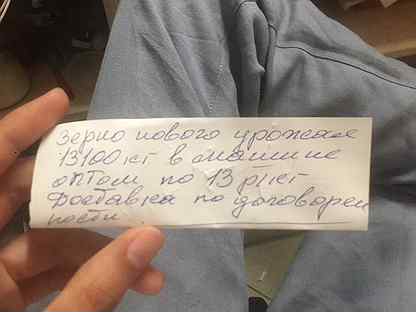 Зерно нового урожая
13100 кг в машине
оптом по 13 р/кг
Доставка по договорен
ности.